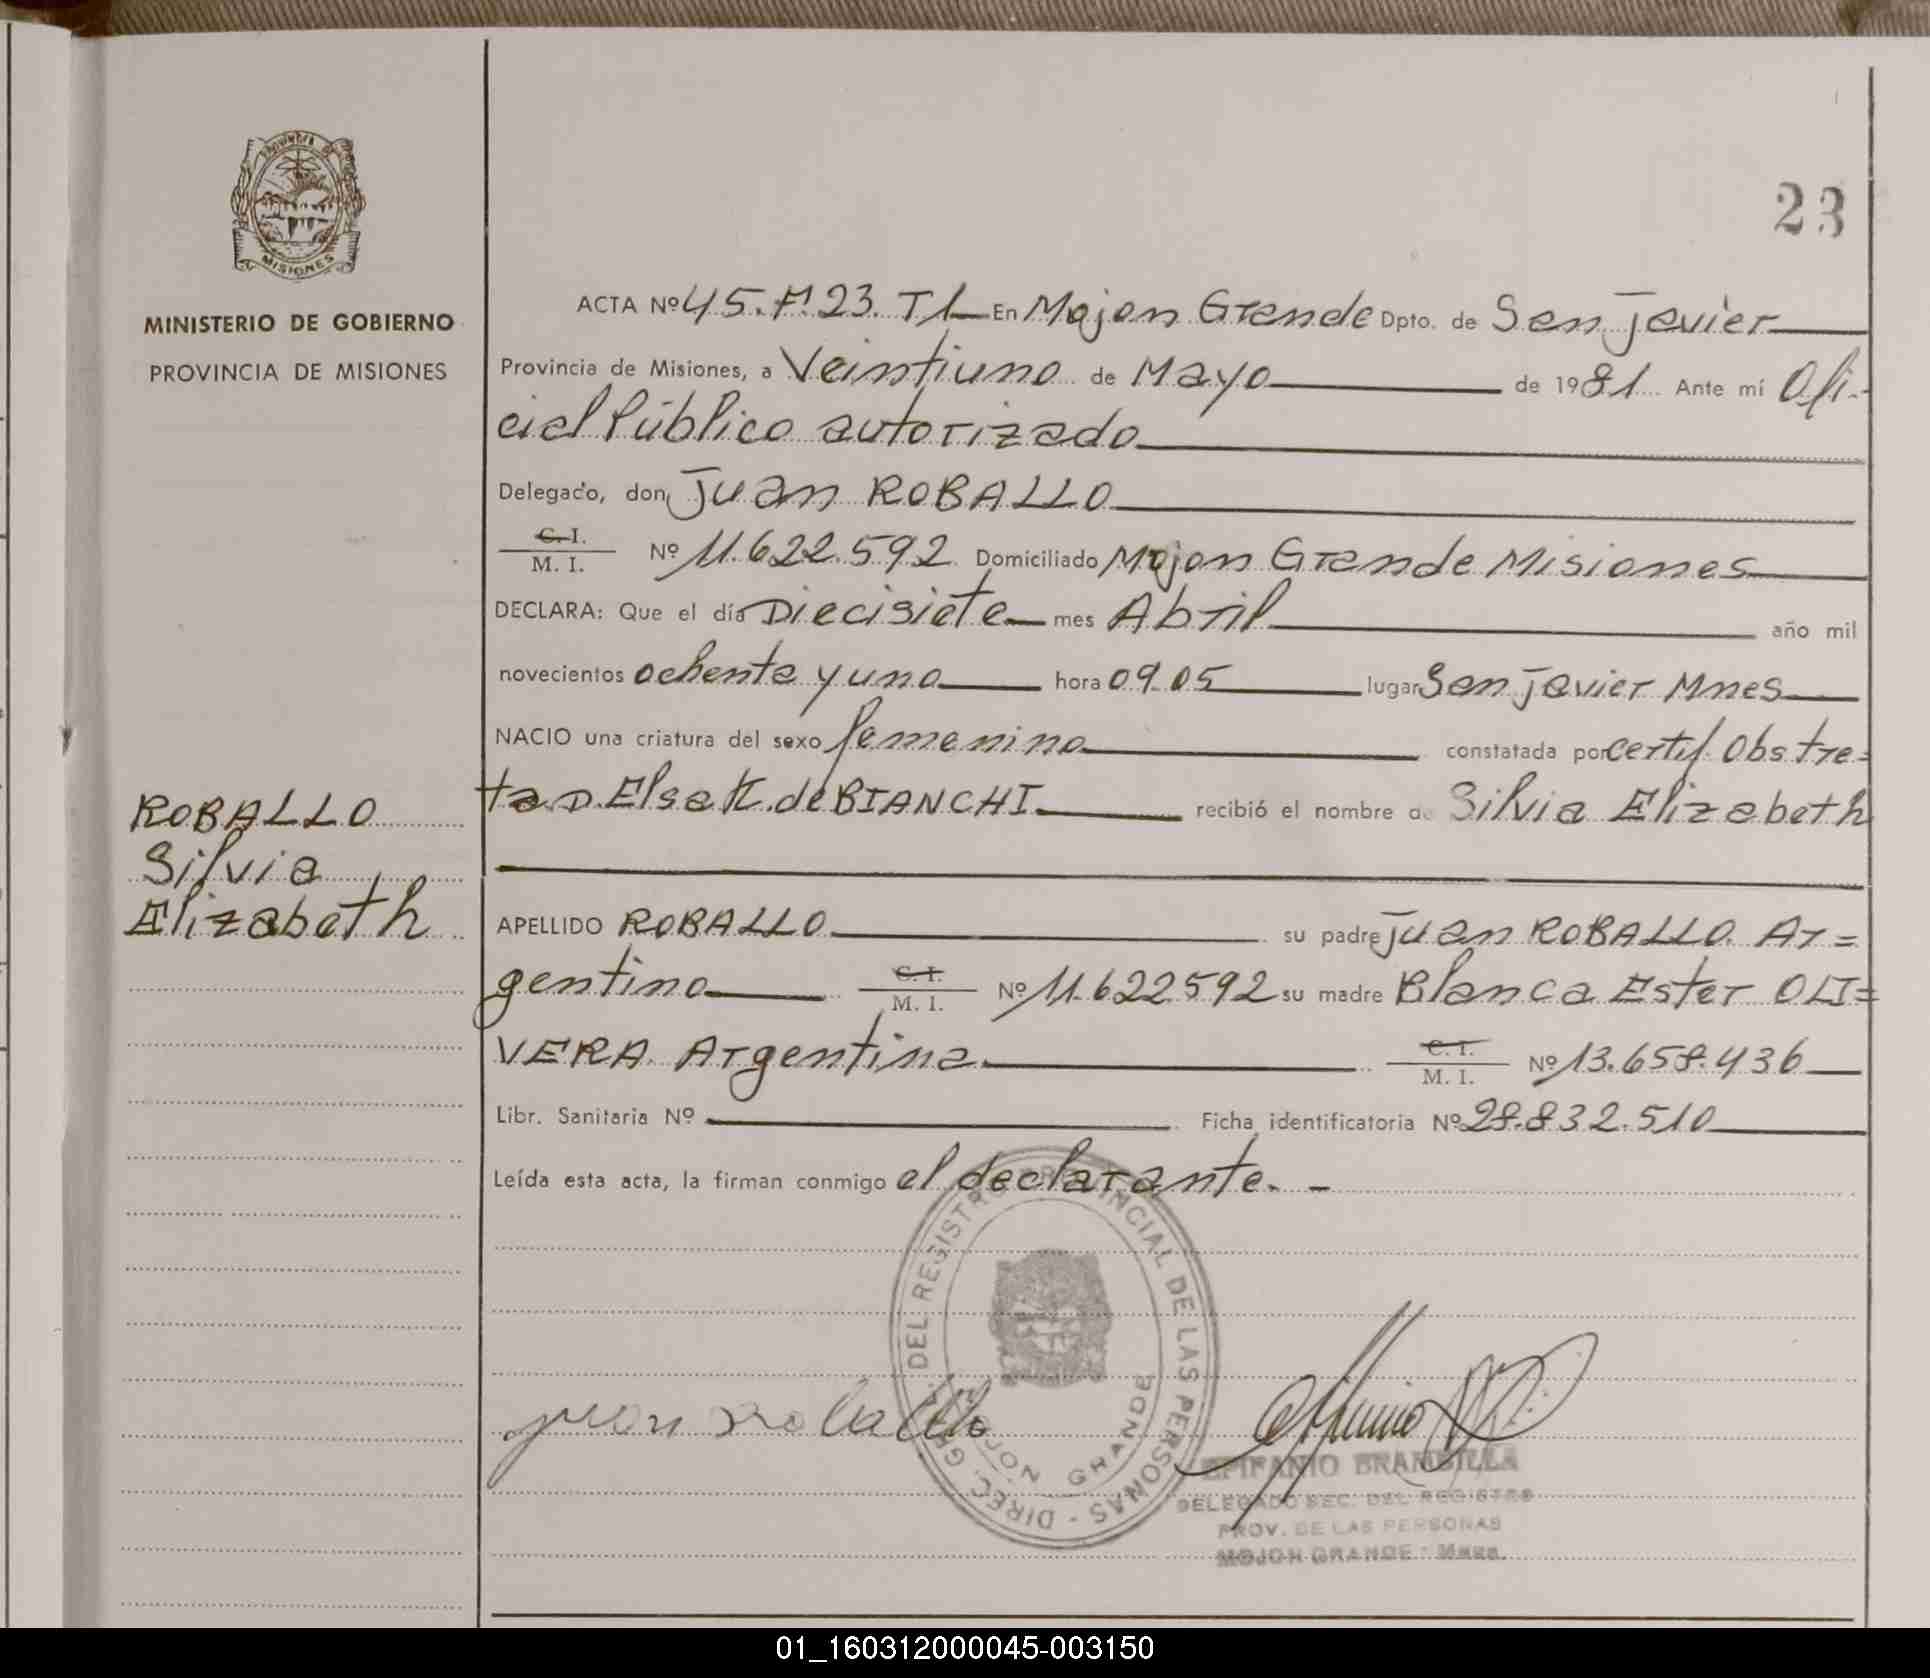 23
MISIONES
MINISTERIO DE GOBIERNO
PROVINCIA DE MISIONES
ACTA Nº 45. F. 23. T1 En Mojon Grande Dpto. de San Javier
Provincia de Misiones, a Veintiuno de Mayo de 1981 Ante mí Ofi-
cial Público autorizado
Delegado, don Juan ROBALLO
C. I.
M. I. Nº 11.622.592 Domiciliado Mojon Grande Misiones
DECLARA: Que el día Diecisiete mes Abril año mil
novecientos ochenta y uno hora 09.05 lugar San Javier Mnes
NACIO una criatura del sexo femenino constatada por certif. Obstre=
ta D. Elsa K. de BIANCHI recibió el nombre de Silvia Elizabeth
ROBALLO
Silvia
Elizabeth
APELLIDO ROBALLO su padre Juan ROBALLO. Ar=
gentino C. I. M. I. Nº 11.622592 su madre Blanca Ester OLI=
VERA. Argentina C. I. M. I. Nº 13.658.436
Libr. Sanitaria Nº Ficha identificatoria Nº 28.832.510
Leída esta acta, la firman conmigo el declarante. -
DIREC. GRAL. DEL REGISTRO PROVINCIAL DE LAS PERSONAS -
MOJON GRANDE
juan roballo
EPIFANIO BRAMBILLA
DELEGADO SEC. DEL REGISTRO
PROV. DE LAS PERSONAS
MOJON GRANDE - Mnes.
01_160312000045-003150